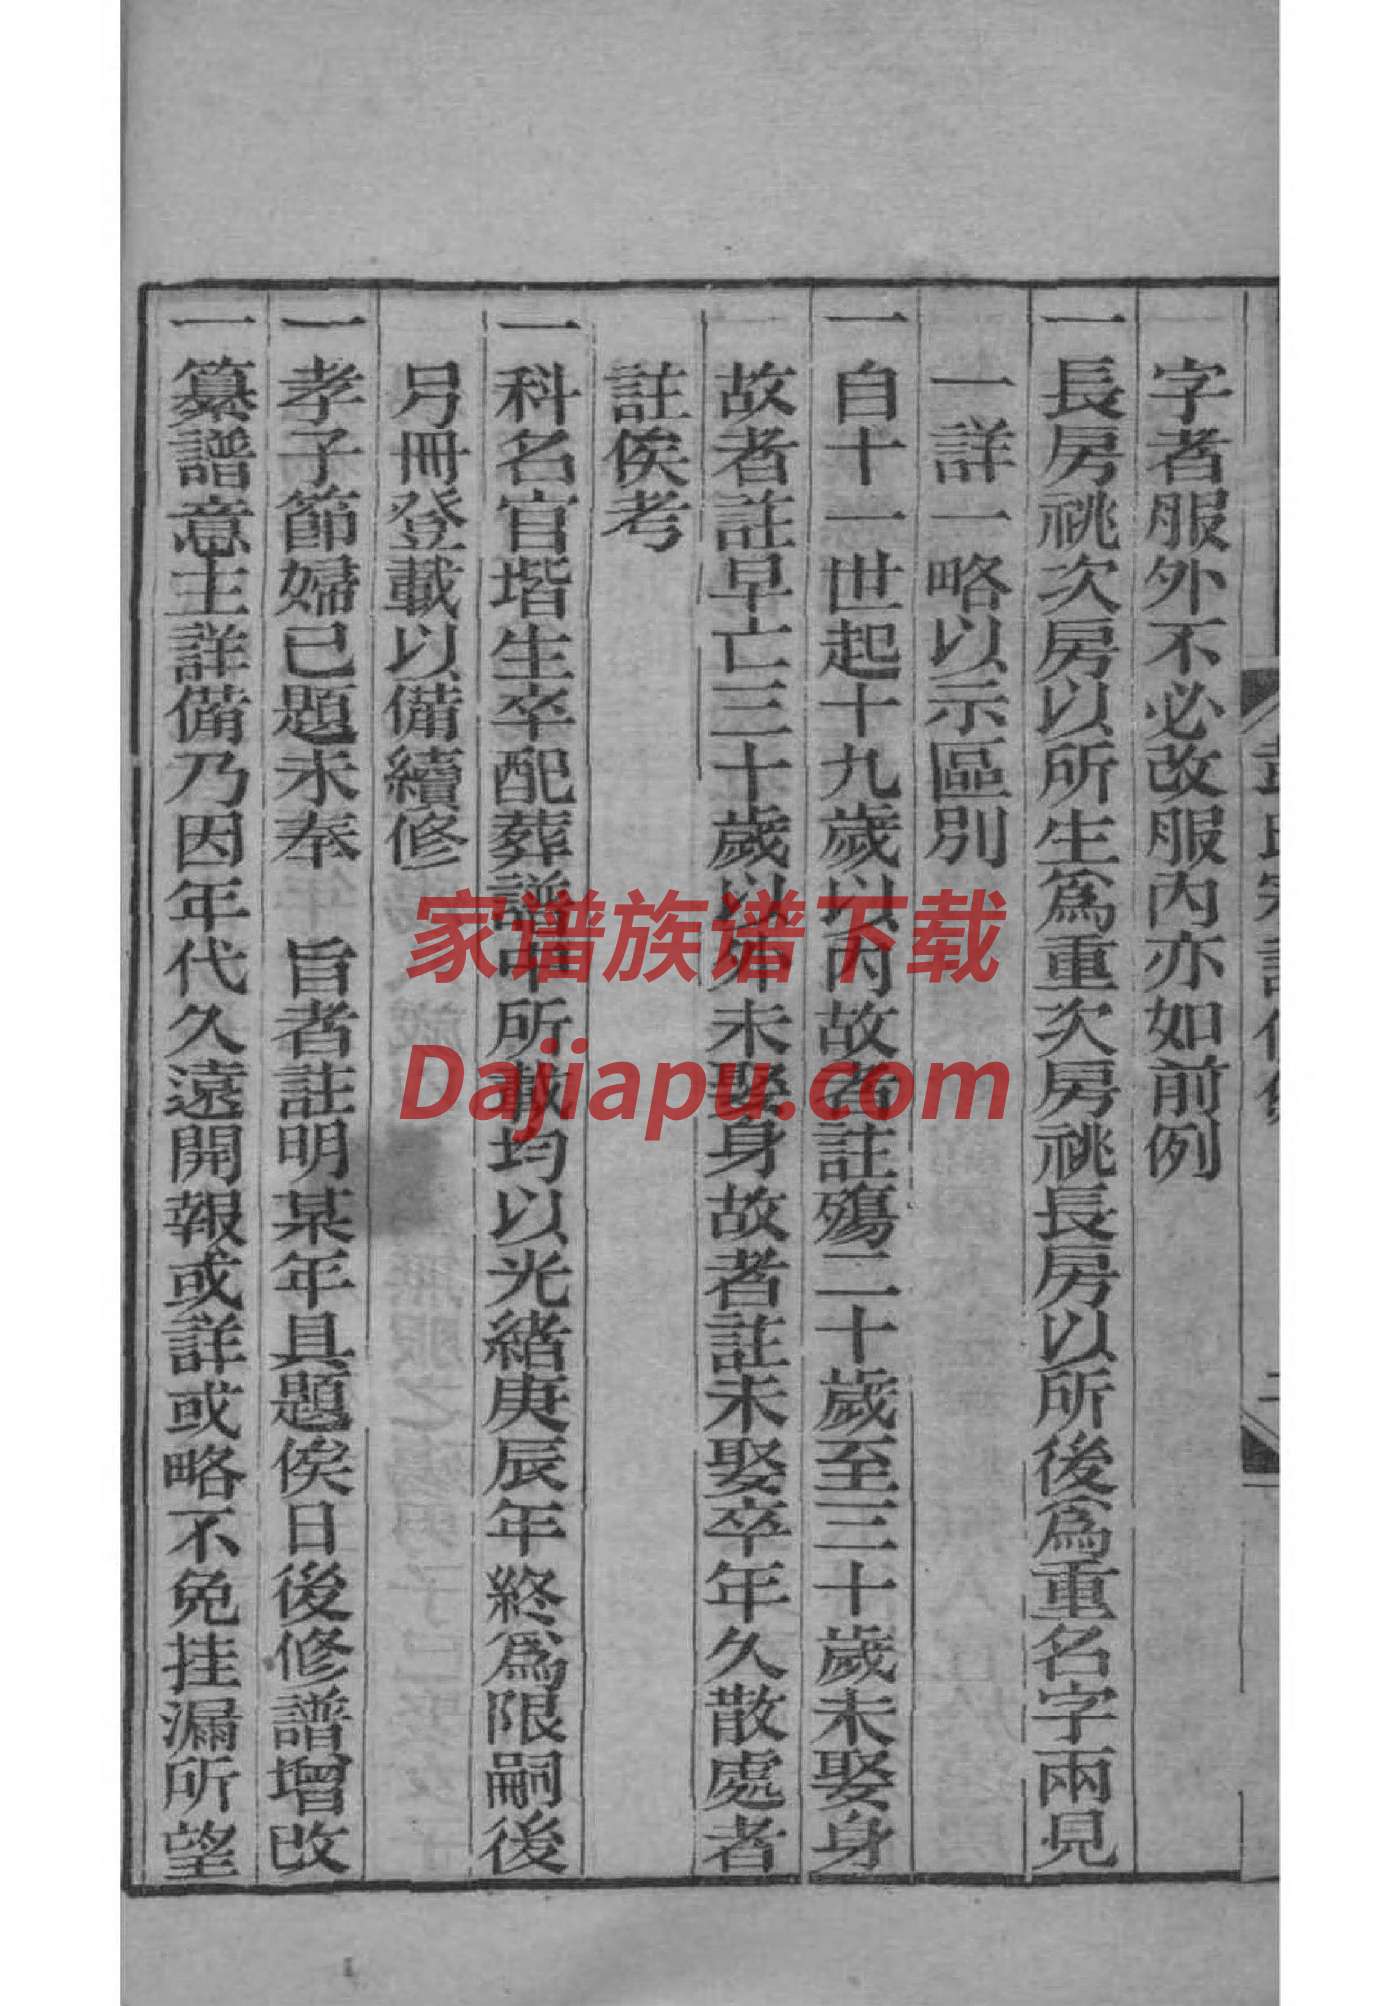 字者服外不必改服內亦如前例
一長房祧次房以所生爲重次房祧長房以所後爲重名字兩見
一詳一略以示區別
一自十一世起十九歲以內故者註殤二十歲至三十歲未娶身
故者註早亡三十歲以外未娶身故者註未娶卒年久散處者
註俟考
一科名官堦生卒配葬譜中所載均以光緒庚辰年終爲限嗣後
另冊登載以備續修
一孝子節婦已題未奉 旨者註明某年具題俟日後修譜增改
一纂譜意主詳備乃因年代久遠開報或詳或略不免挂漏所望
家谱族谱下载
Dajiapu.com